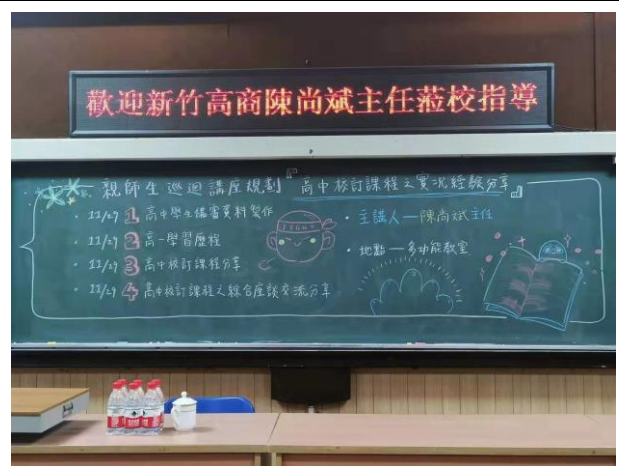 歡迎新竹高商陳尚斌主任蒞校指導
親師生巡迴講座規劃『高中校訂課程之實況經驗分享』
11/29 1 高中學生備審資料製作
11/29 2 高一學習歷程
11/29 3 高中校訂課程分享
11/29 4 高中校訂課程之綜合座談交流分享
主講人—陳尚斌主任
地點—多功能教室